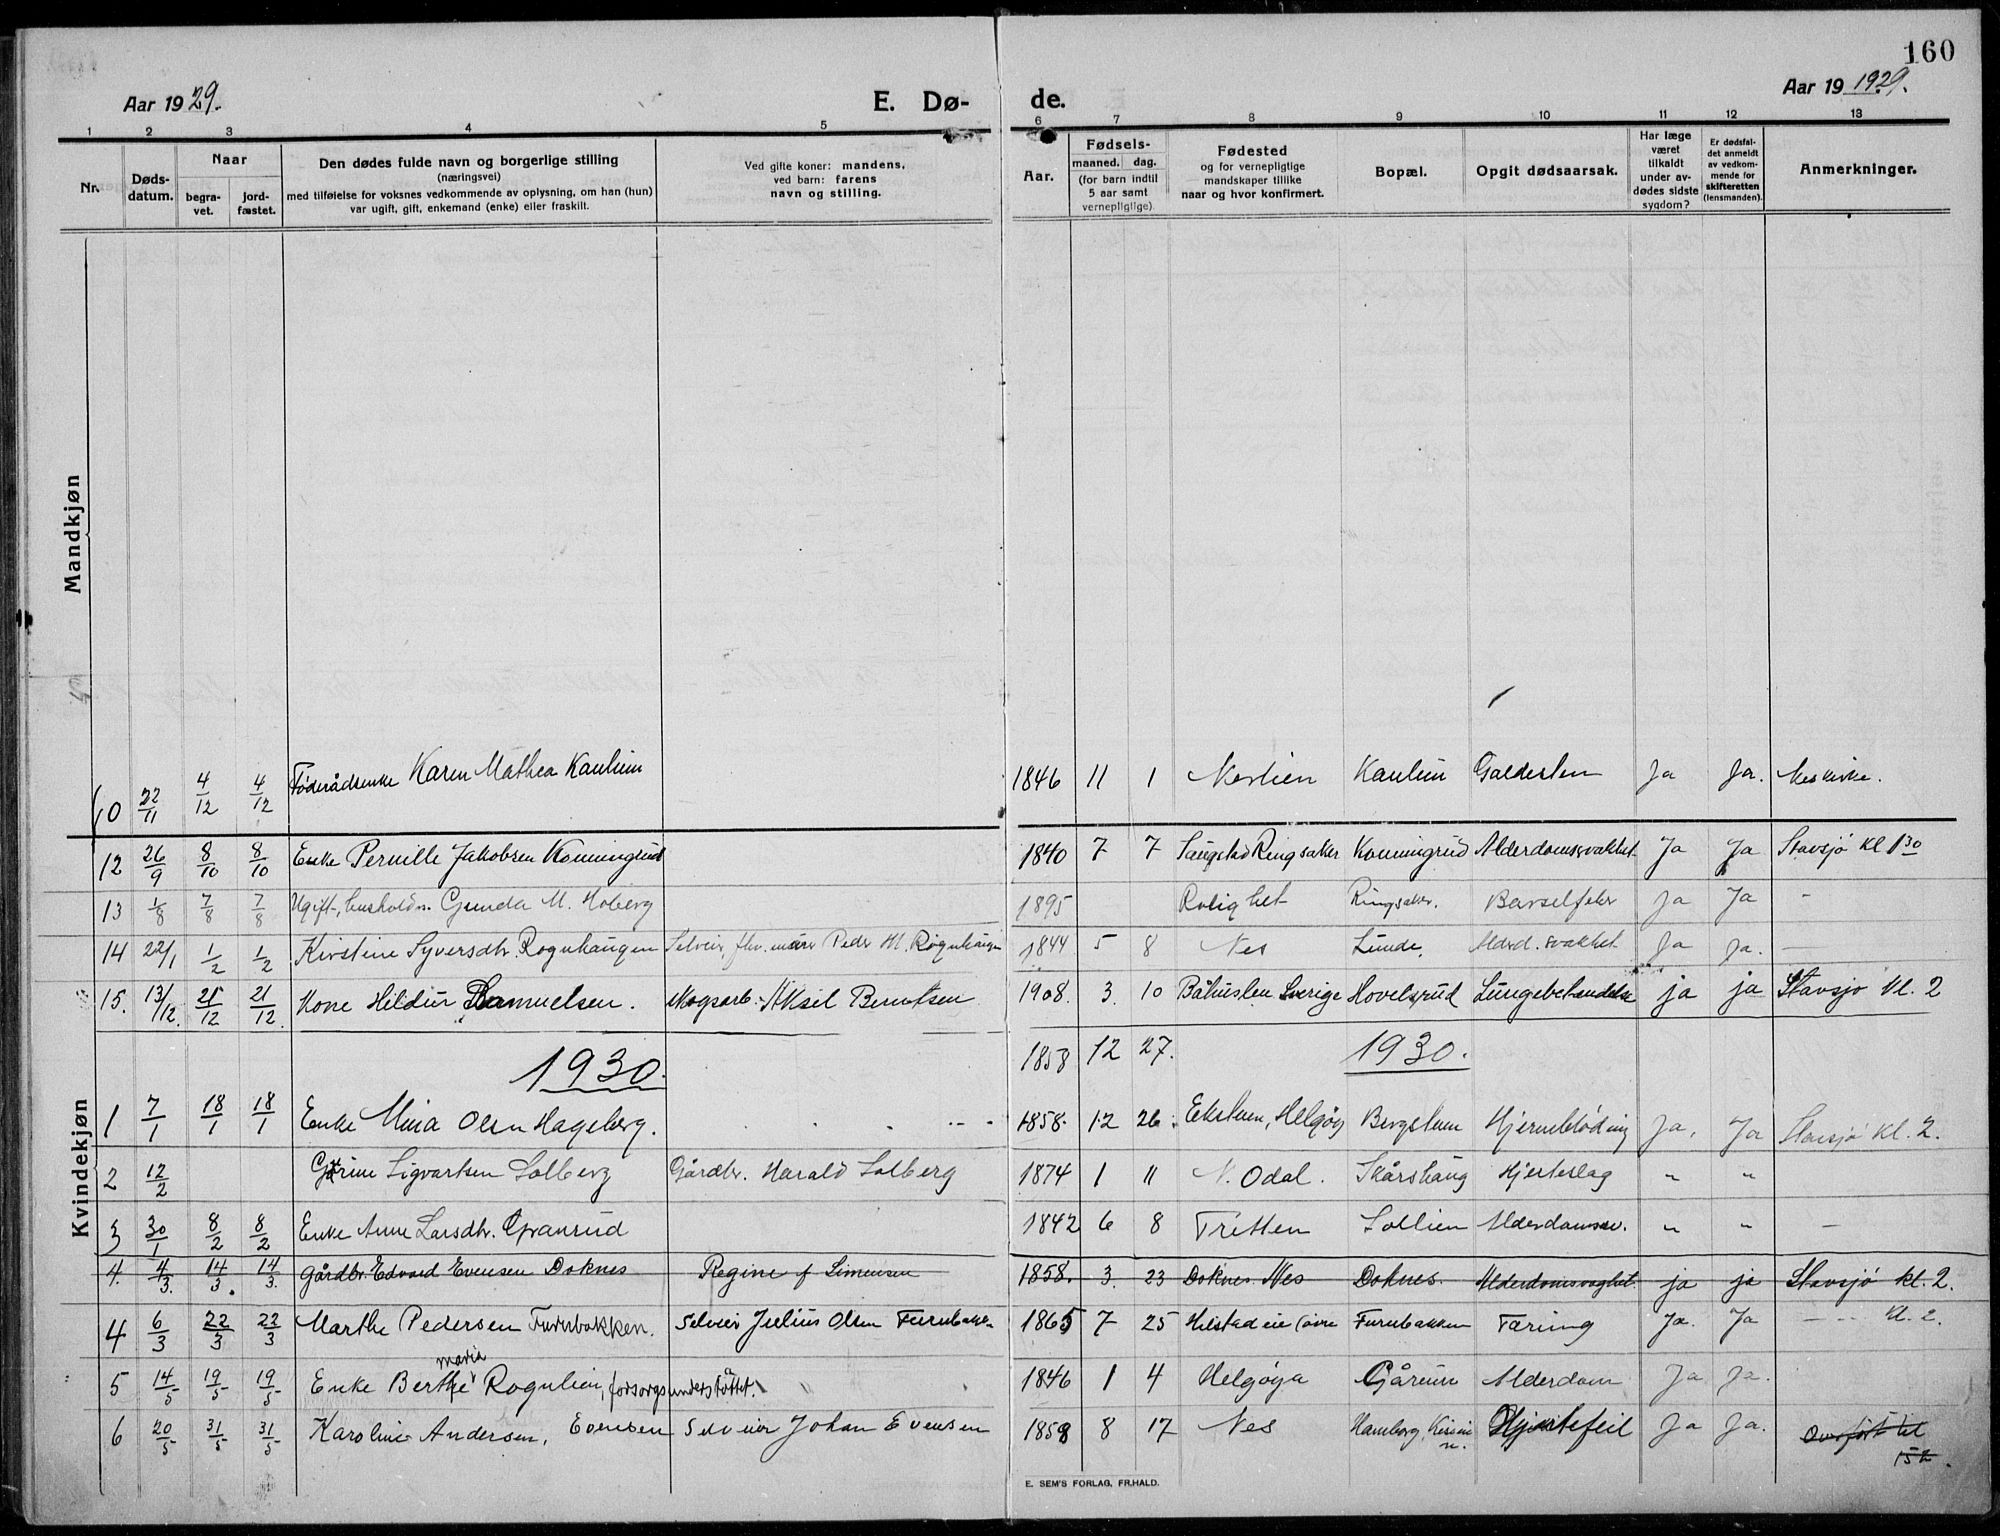 160
Aar 1929. E. Dø- de. Aar 19 1929.
1 2 3 4 5 6 7 8 9 10 11 12 13
Nr.
Døds-
datum.
Naar
begra-
vet.
jord-
fæstet.
Den dødes fulde navn og borgerlige stilling
(næringsvei)
med tilføielse for voksnes vedkommende av oplysning, om han (hun)
var ugift, gift, enkemand (enke) eller fraskilt.
Ved gifte koner: mandens,
ved barn: farens
navn og stilling.
Aar.
Fødsels-
maaned. dag.
(for barn indtil
5 aar samt
vernepligtige).
Fødested
og for vernepligtige
mandskaper tillike
naar og hvor konfirmert.
Bopæl.
Opgit dødsaarsak.
Har læge
været
tilkaldt
under av-
dødes sidste
sygdom?
Er dødsfal-
det anmeldt
av vedkom-
mende for
skifteretten
(lensmanden).
Anmerkninger.
Mandkjøn
10 22/11 4/12 4/12 Føderådsenke Karen Mathea Kaulum 1846 11 1 Nerlien Kaulum Galdesten Ja Ja. Neskirke.
12 26/9 8/10 8/10 Enke Pernille Jakobsen Konningrud 1840 7 7 Saugstad Ringsaker Konningrud Alderdomssvakhet Ja Ja Stavsjø Kl 1 30
13 1/8 7/8 7/8 Ugift, husholdn. Gunda M. Hoberg 1895 Rolighet Ringsaker. Barselfeber Ja Ja -
14 22/1 1/2 1/2 Kirstine Syversdtr. Rognhaugen Selveier, fhv. murer Peder M. Rognhaugen 1844 5 8 Nes Lunde. Alderd. svakhet Ja Ja. -
15. 13/12. 21/12 21/12. Kone Hildur Samuelsen. Skogsarb. Aksel Berntsen 1908. 3. 10 Båhuslen Sverige Hovelsrud Lungebetendelse ja ja Stavsjø kl. 2
1930. 1858 12 27. 1930.
Kvindekjøn
1 7/1 18/1 18/1 Enke Mina Olsen Hageberg. 1858. 12 26. Ekelund, Helgøy Bergslun Hjerneblødning Ja. Ja Stavsjø kl. 2.
2 12/2 Sigvartsen Solberg Gårdbr. Harald Solberg 1874 1 11 N. Odal. Skårshaug Hjerteslag " "
3 30/1 8/2 8/2 Enke Anne Larsdtr. Granrud 1842 6 8 Tretten Sollien Alderdomssv. " " -
4. 4/3. 14/3. 14/3. Gårdbr. Edvard Evensen Doknes Regine f Simensen 1858. 3. 23 Doknes. Nes Doknes. Alderdomsvaghet. ja ja Stavsjø kl. 2.
4 6/3 22/3 22/3 Marthe Pedersen Furubakken. Selveier Julius Olsen Furubakken 1865 7 25 Furubakken Tæring Ja. Ja - " - kl. 2.
maria
5 14/5 19/5 19/5 Enke Berthe Rognlien, forsorgsunderstøttet. 1846 1 4 Helgøya Gårum Alderdom Ja Ja.
6 20/5 31/5 31/5 Karoline Andersen, Evensen Selveier Johan Evensen 1858 8 17 Nes Hjertefeil Ja Ja. Overført til
152.
E. SEM'S FORLAG, FR.HALD.